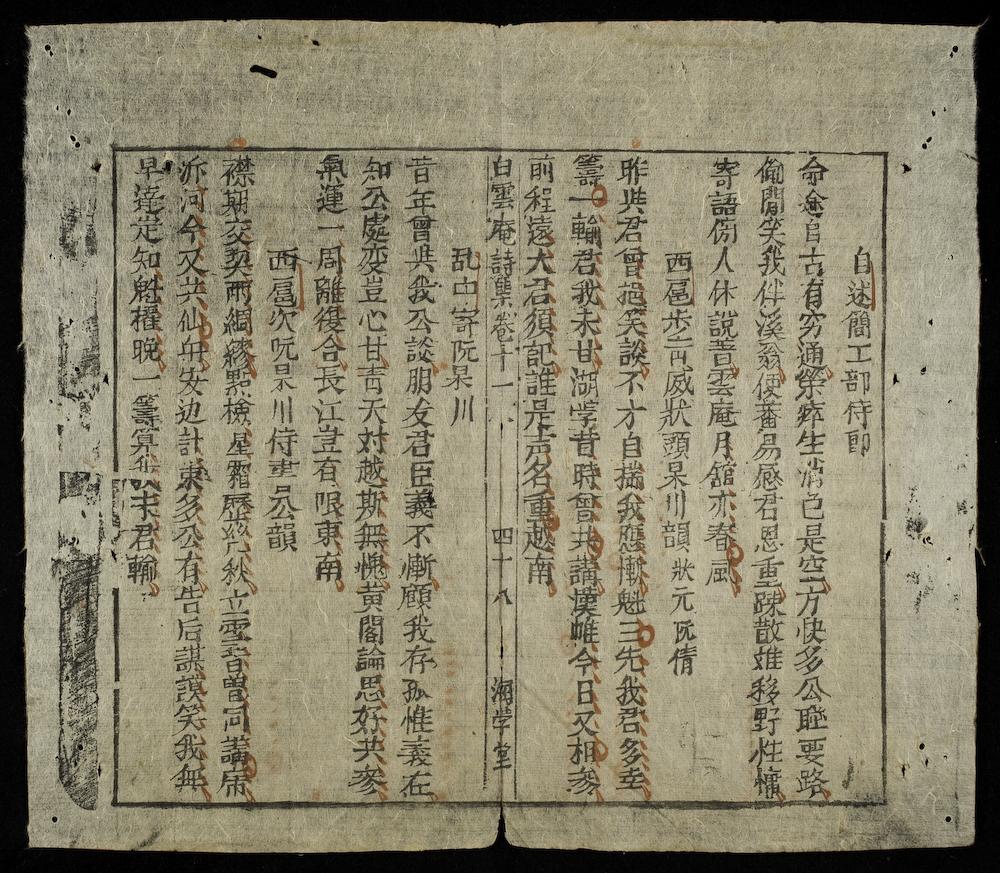 自述簡工部侍郎
命途自古有穷通榮瘁生消色是空方快多公聮要路
偷閒笑我伴溪翁使蕃易感君恩重踈散难移野性慵
寄語傍人休說善雲庵月舘亦春風
西扈步前威狀頭杲川韻 狀元阮倩
昨共君曾挹笑談不才自揣我應慚魁三先我君多幸
籌一輸君我未甘湖学昔時曾共講漢帷今日又相参
前程遠大君須記誰是声名重越南
白雲庵詩集卷十一 四十八 海学堂
乱中寄阮杲川
昔年曾共我公談朋友君臣義不慚顧我存孤惟義在
知公處変豈心甘青天対越斯無愧黄閣論思好共参
氣運一周離復合長江豈有限東南
西扈次阮杲川侍書公韻
襟期交契两綢繆點檢星霜歷幾秋立雪昔曽同講席
泝河今又共仙舟安边計策多公有告后謀謨笑我無
早達定知魁擢晚一籌算我未君輸